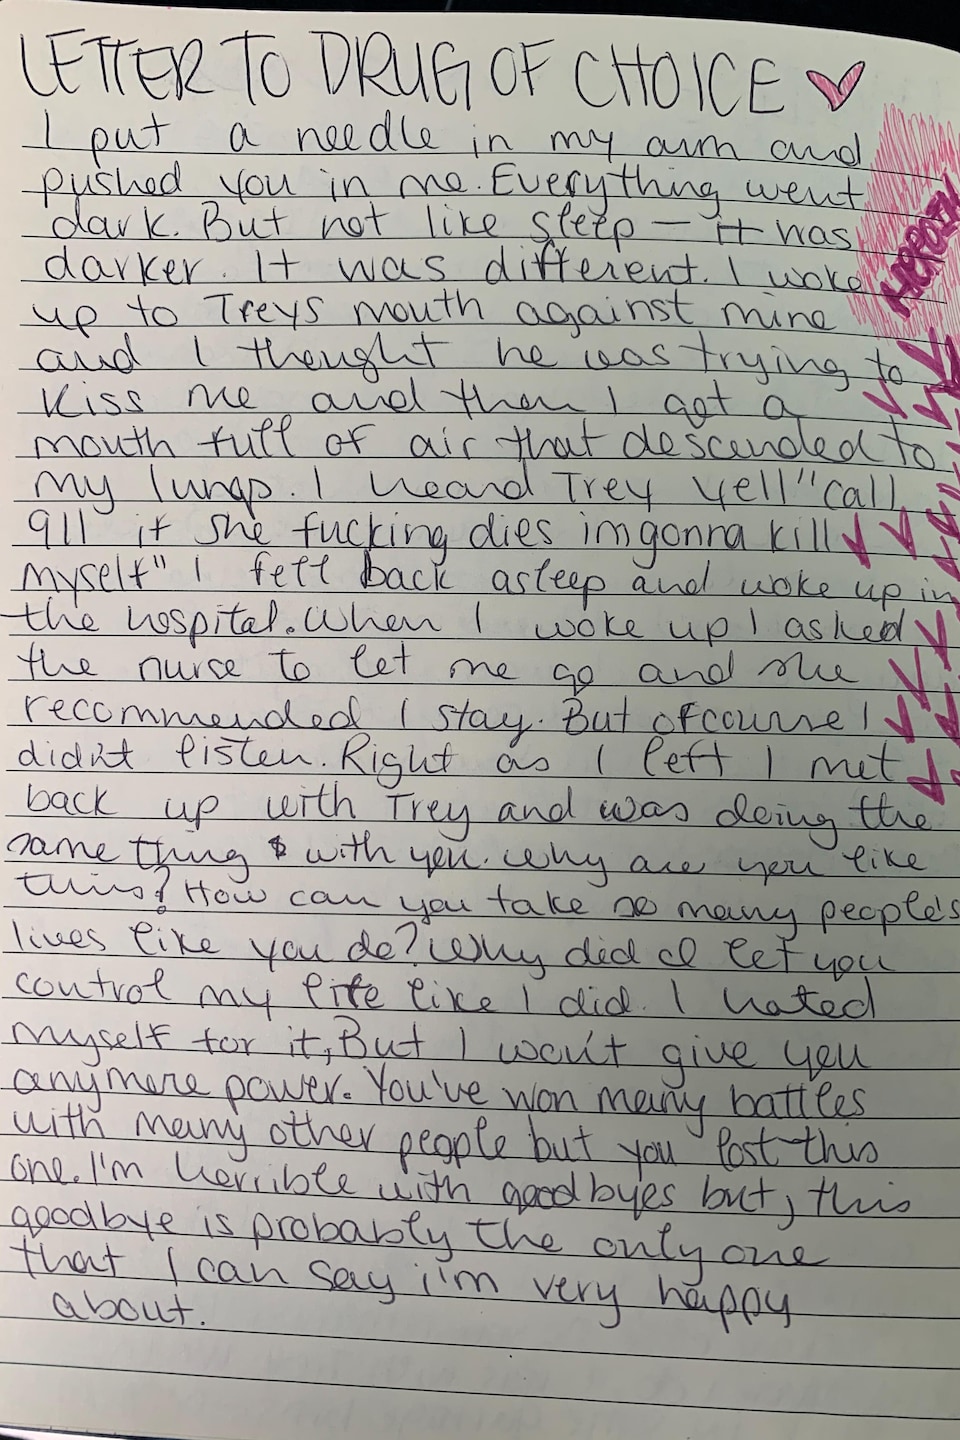 LETTER TO DRUG OF CHOICE
I put a needle in my arm and
pushed you in me. Everything went
dark. But not like sleep — it was
darker. It was different. I woke
up to Treys mouth against mine
and I thought he was trying to
kiss me and then I got a
mouth full of air that descended to
my lungs. I heard Trey yell "call
911 if she fucking dies im gonna kill
myself" I fell back asleep and woke up in
the hospital. When I woke up I asked
the nurse to let me go and she
recommended I stay. But ofcourse I
didn't listen. Right as I left I met
back up with Trey and was doing the
same thing with you. Why are you like
this? How can you take so many people's
lives like you do? Why did I let you
control my life like I did. I hated
myself for it, But I won't give you
anymore power. You've won many battles
with many other people but you lost this
one. I'm horrible with goodbyes but, this
goodbye is probably the only one
that I can say i'm very happy
about.